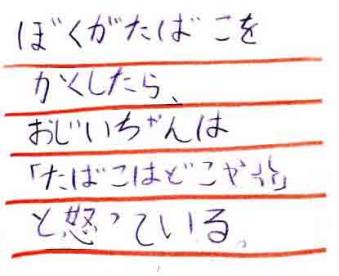 ぼくがたばこを
かくしたら、
おじいちゃんは
「たばこはどこや💢」
と怒っている。